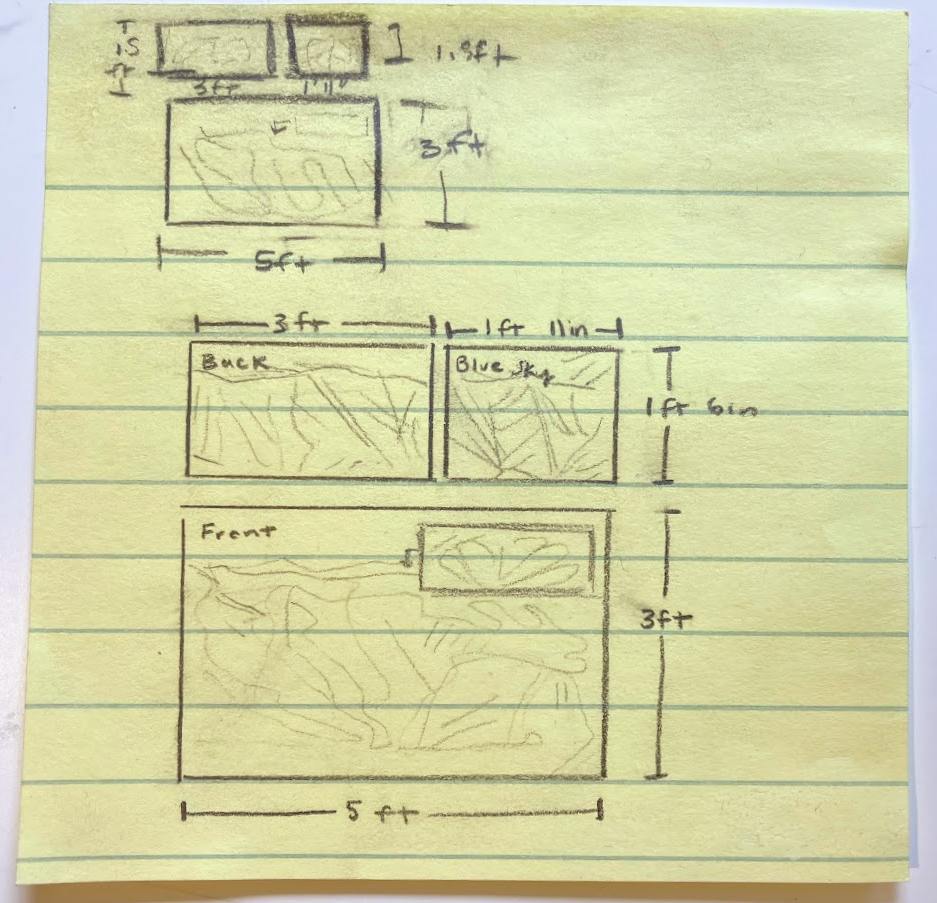 1.5 ft
1.5ft
3ft 1'11"
3 ft
5ft
3 ft 1ft 11in
Back Blue Sky
1ft 6in
Front
3ft
5 ft